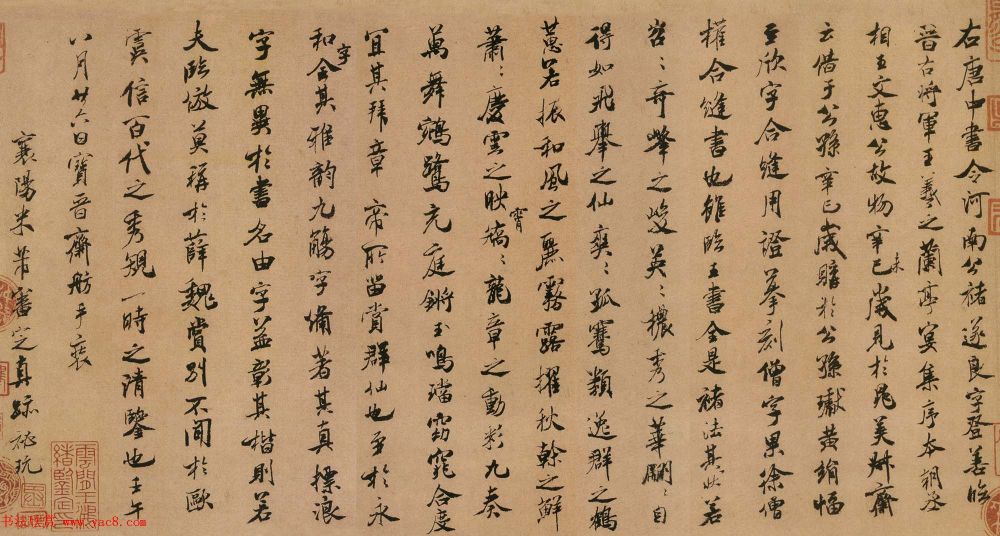 右唐中書令河南公褚遂良字登善臨
晉右將軍王羲之蘭亭宴集序本朝丞
相王文惠公故物辛巳未歲見於晁美叔齋
云借于公孫辛巳歲購於公孫瓛黃絹幅
至欣字合縫用證摹刻僧字果徐僧
權合縫書也雖臨王書全是褚法其狀若
岩岩奇峰之峻英英穠秀之華翩翩自
得如飛舉之仙爽爽孤騫類逸群之鶴
蕙若振和風之麗霧露擢秋幹之鮮
蕭蕭慶雲之映霄矯矯龍章之動彩九奏
萬舞鵷鷺充庭鏘玉鳴璫窈窕合度
宜其拜章帝所留賞群仙也至於永
和字全其雅韵九觴字備著其真標浪
字無異於書名由字益彰其楷則若
夫臨倣莫稱於薛魏賞別不聞於歐
虞信百代之秀規一時之清鑒也壬午
八月廿六日寶晉齋舫手裝
襄陽米芾審定真跡祕玩
书法欣赏 www.yac8.com